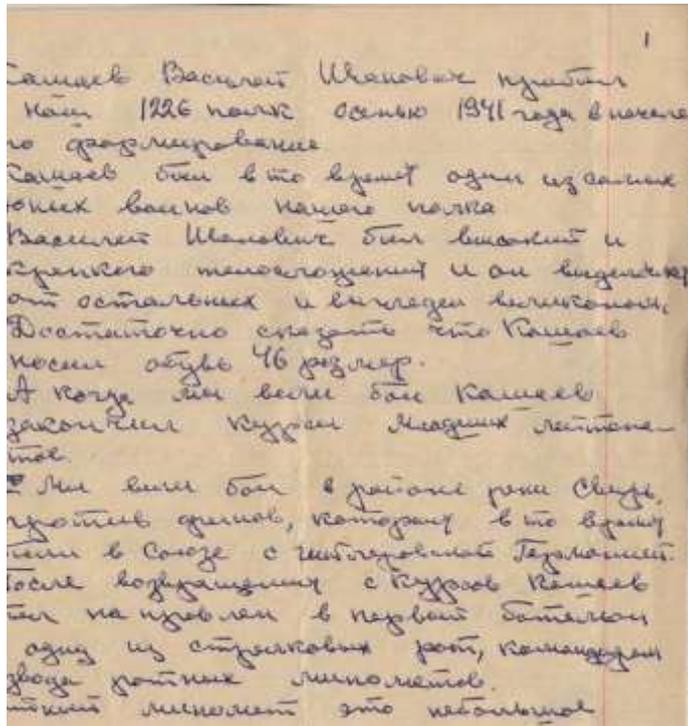 1
Кашаев Василий Иванович прибыл
наш 1226 полк осенью 1941 года в начале
го формирование
Кашаев был в то время один из самых
юных воинов нашего полка
Василий Иванович был высокий и
крепкого телосложений и он выделялся
от остальных и выгледел великаном,
Достаточно сказать что Кашаев
носил обувь 46 розмер.
А когда мы вели бои Кашаев
закончил курсы младших лейтена-
тов.
Мы вели бои в районе реки Свирь,
против финов, которы в то время
были в Союзе с гитлеровской Германией.
После возвращения с курсов Кашаев
был направлен в первый батальон
одну из стрелковых рот, командером
взвода ротных минометов.
миномет это небольшое